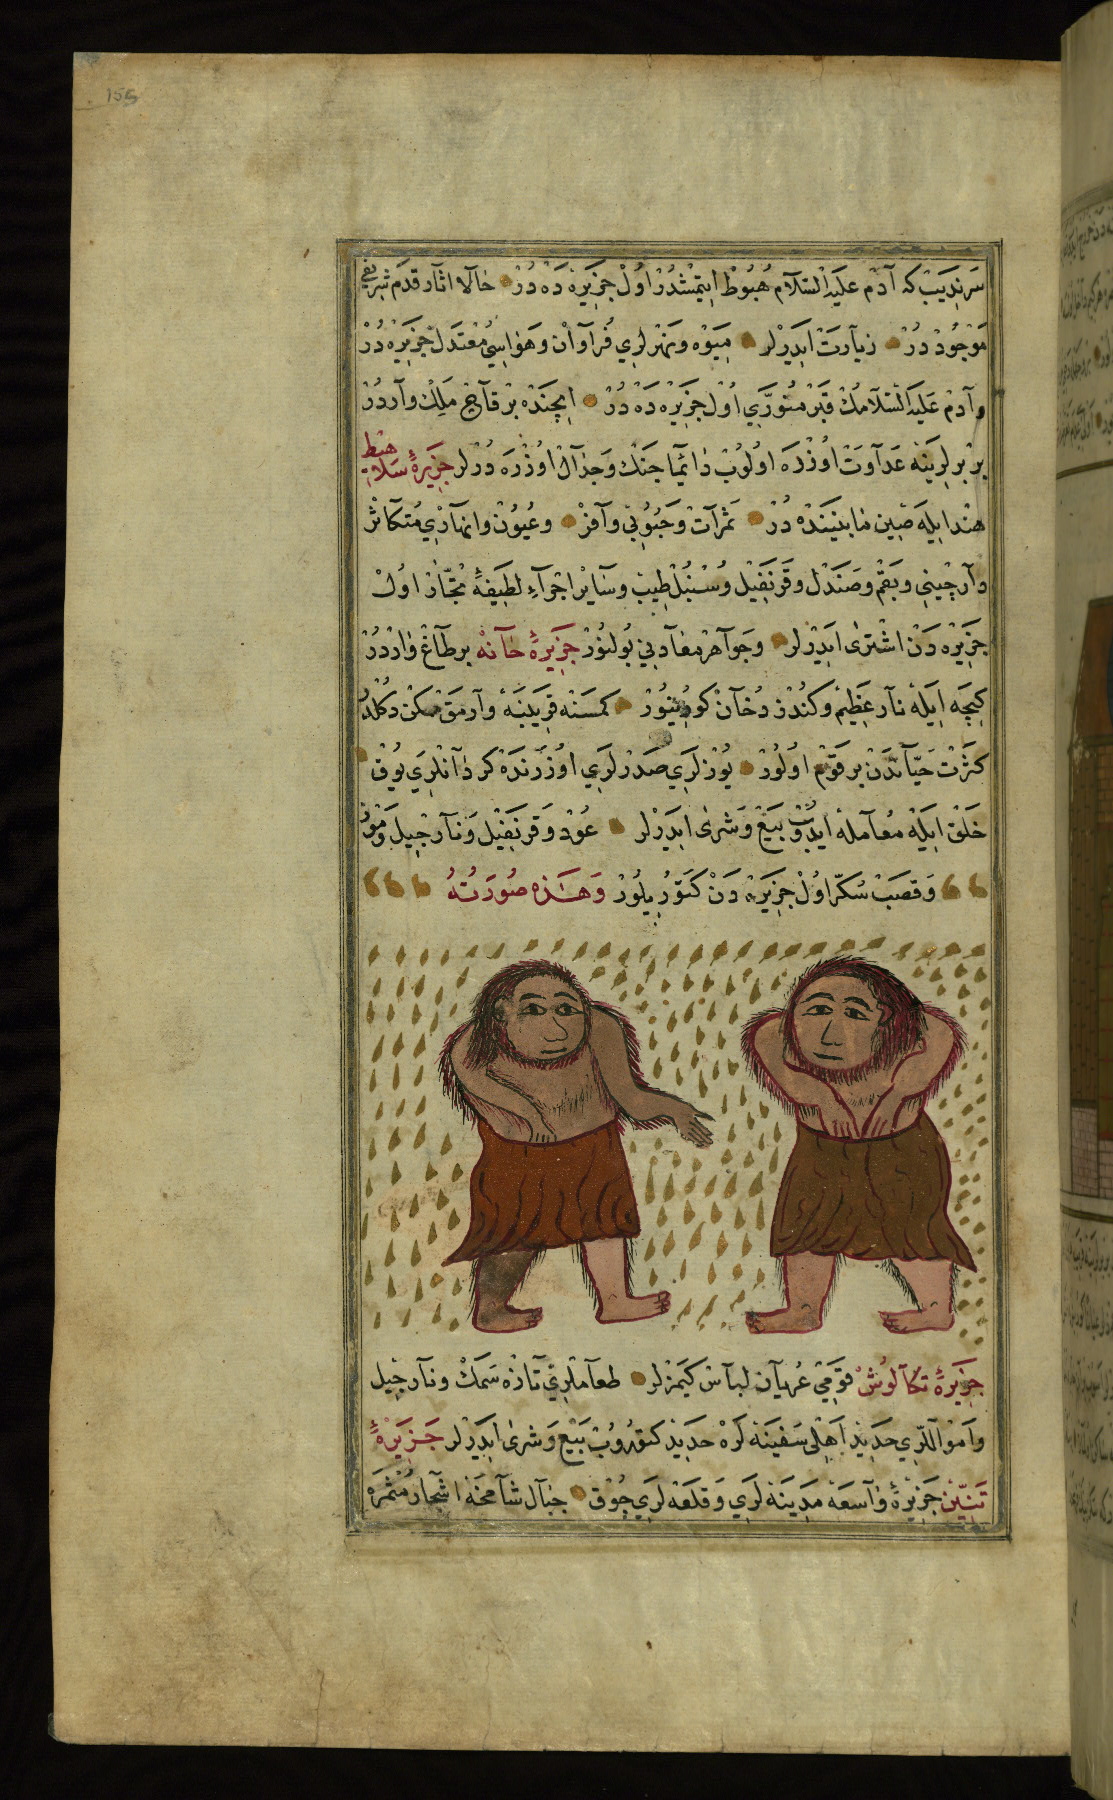 155
سرنديب كه آدم عليه السلام هبوط ايتمشدر اول جزيره ده در حالا اثار قدم شريفى
موجود در زيارت ايدرلر ميوه و نهرلري فراوان و هواسي معتدل جزيره در
و آدم عليه السلامك قبر منوري اول جزيره ده در ايچنده برقاج ملك واردر
بربرلرينه عداوت اوزره اولوب دائما جنك وجدال اوزره درلر جزيرۀ سلاهط
هند ايله صين مابيننده در ثمرات وحبوبي وافر وعيون وانهاري متكاثر
دارچيني وبقم وصندل وقرنفيل وسنبل طيب وساير اجزاء لطيفۀ تجار اول
جزيره دن اشترى ايدرلر وجواهر معادني بولنور جزيرۀ جانه برطاغ واردر
كيجه ايله نار عظيم وكندز دخان كورينور كمسنه قريبنه وارمق ممكن دكلدر
كثرت حياتدن بر قوم اولور يوزلري صدرلري اوزرنده كردانلري يوق
خلق ايله معامله ايدوب بيع وشرى ايدرلر عود وقرنفيل ونارجيل وموز
وقصب سكر اول جزيره دن كتوريلور وهذه صورته
جزيرۀ تكالوش قومي عريان لباس كيمزلر طعاملري تازه سمك ونارجيل
واموالاري حديد اهلى سفينه لره حديد كتوروب بيع وشرى ايدرلر جزيرۀ
تنين جزيرۀ واسعه مدينه لري وقلعه لري چوق جبال شامخه اشجار مثمره